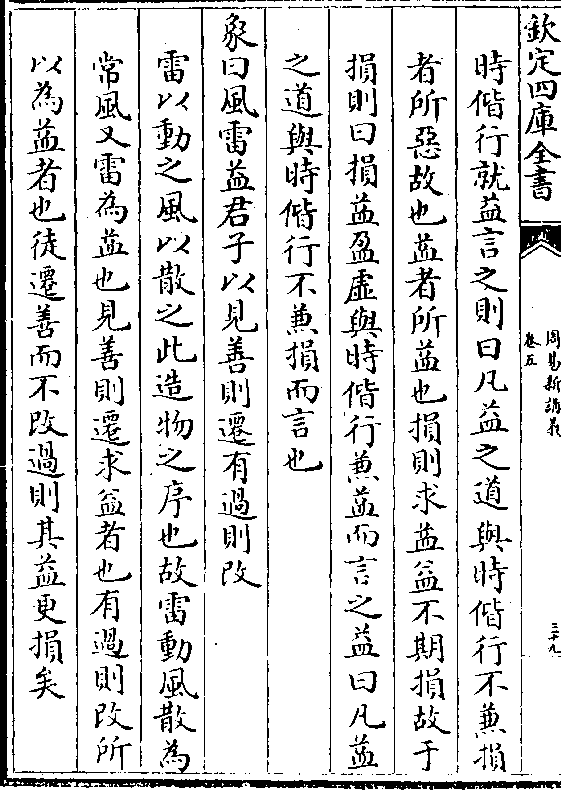 欽定四庫全書
周易新講義
卷五
三十九
時偕行就益言之則曰凡益之道與時偕行不兼損
者所惡故也益者所益也損則求益益不期損故于
損則曰損益盈虛與時偕行兼益而言之益曰凡益
之道與時偕行不兼損而言也
象曰風雷益君子以見善則遷有過則改
雷以動之風以散之此造物之序也故雷動風散為
常風又雷為益也見善則遷求益者也有過則改所
以為益者也徒遷善而不改過則其益更損矣